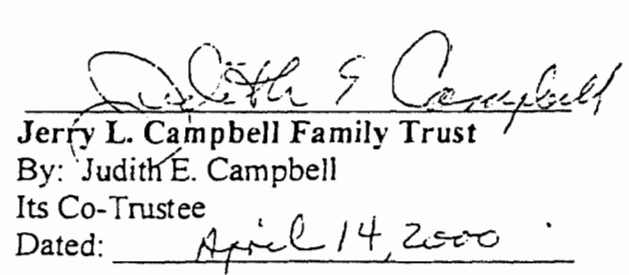 Judith E Campbell
Jerry L. Campbell Family Trust
By: Judith E. Campbell
Its Co-Trustee
Dated: April 14, 2000